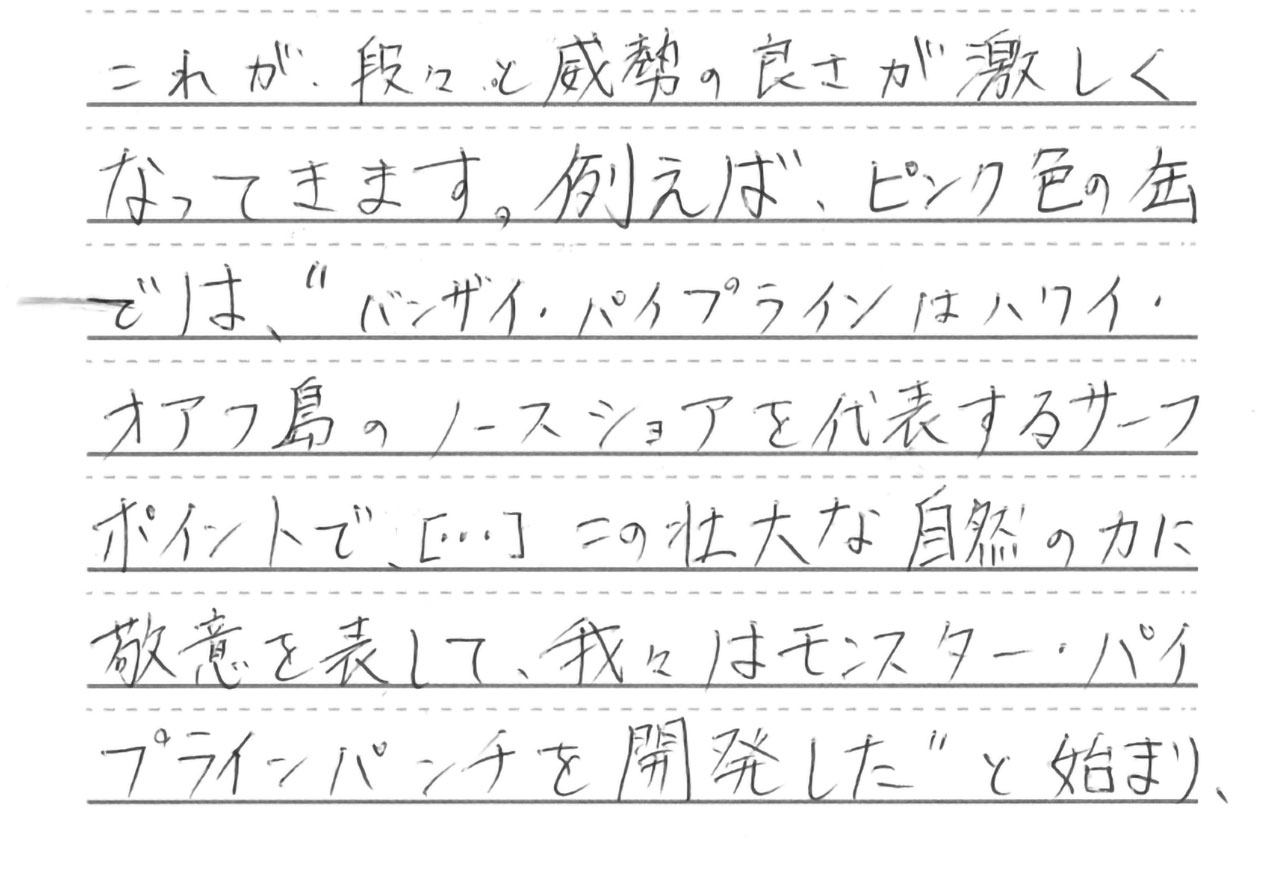 これが、段々と威勢の良さが激しく
なってきます。例えば、ピンク色の缶
では、“バンザイ・パイプラインはハワイ・
オアフ島のノースショアを代表するサーフ
ポイントで、[…]この壮大な自然の力に
敬意を表して、我々はモンスター・パイ
プラインパンチを開発した”と始まり、